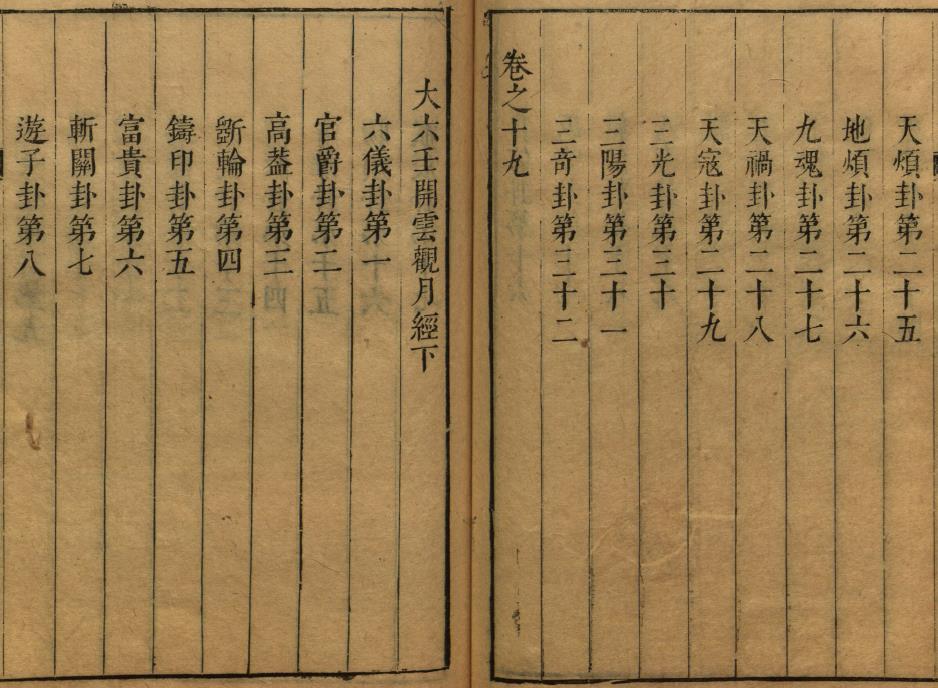 天煩卦第二十五
地煩卦第二十六
九魂卦第二十七
天禍卦第二十八
天寇卦第二十九
三光卦第三十
三陽卦第三十一
三奇卦第三十二
卷之十九
大六壬開雲觀月經下
六儀卦第一
官爵卦第二
高葢卦第三
斵輪卦第四
鑄印卦第五
富貴卦第六
斬關卦第七
遊子卦第八